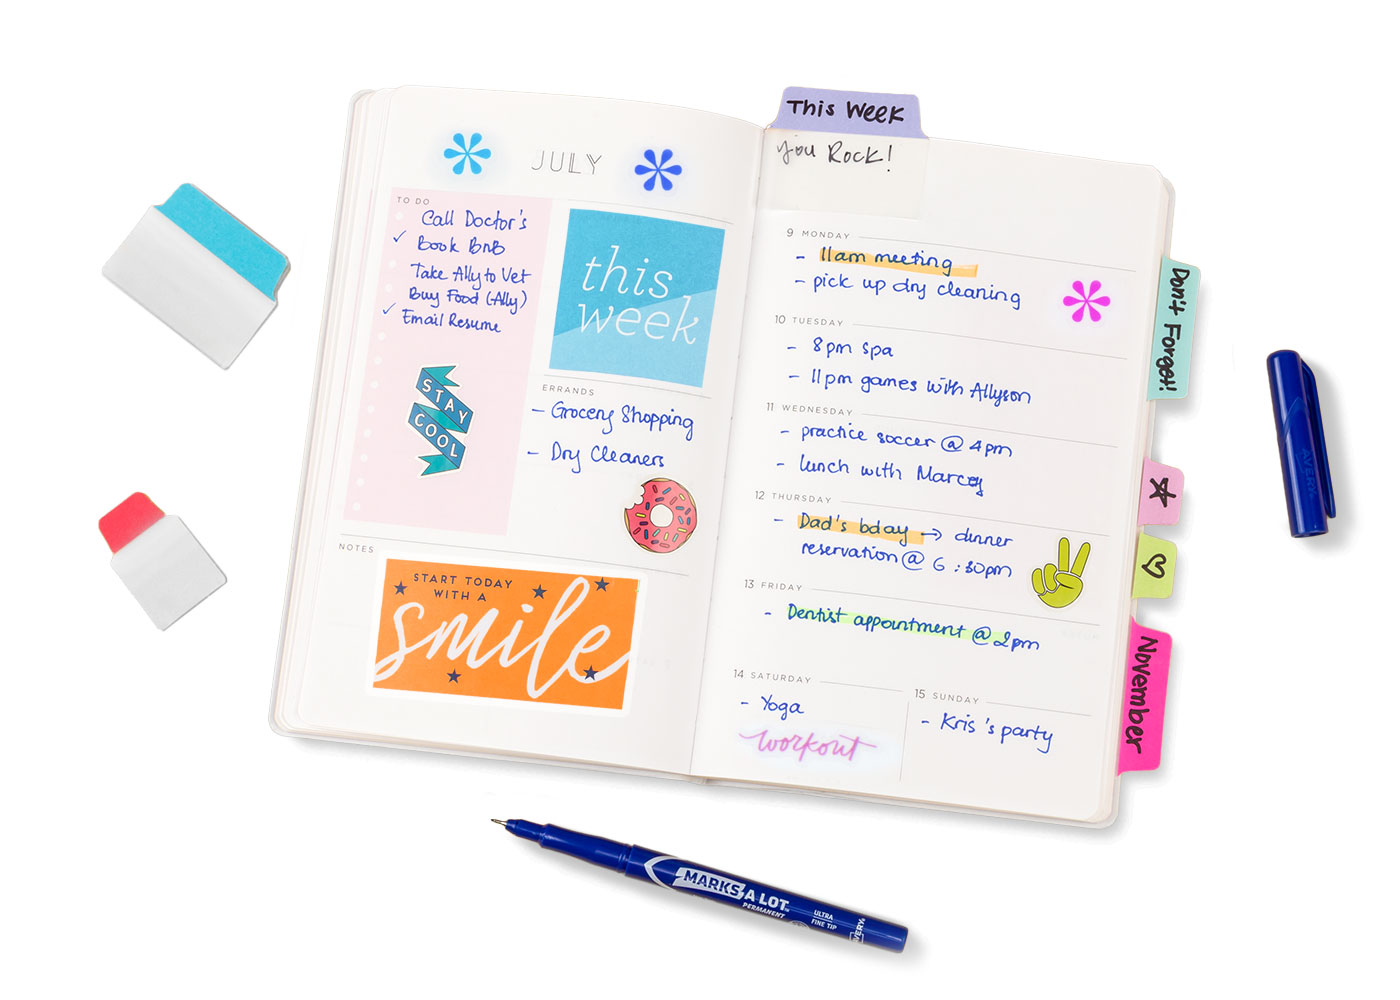 JULY
TO DO
Call Doctor's
✓ Book BnB
Take Ally to Vet
Buy Food (-Ally)
✓ Email Resume
STAY
COOL
this
week
ERRANDS
- Grocery Shopping
- Dry Cleaners
NOTES
START TODAY
WITH A
smile
This Week
you Rock!
9 MONDAY
- 11am meeting
- pick up dry cleaning
10 TUESDAY
- 8pm spa
- 11pm games with Allyson
11 WEDNESDAY
- practice soccer @ 4pm
- lunch with Marcey
12 THURSDAY
- Dad's bday → dinner
reservation @ 6:30pm
13 FRIDAY
- Dentist appointment @ 2pm
14 SATURDAY
- Yoga
workout
15 SUNDAY
- Kris's party
Don't Forget!!
November
AVERY
MARKS A LOT
PERMANENT
ULTRA
FINE TIP
AVERY